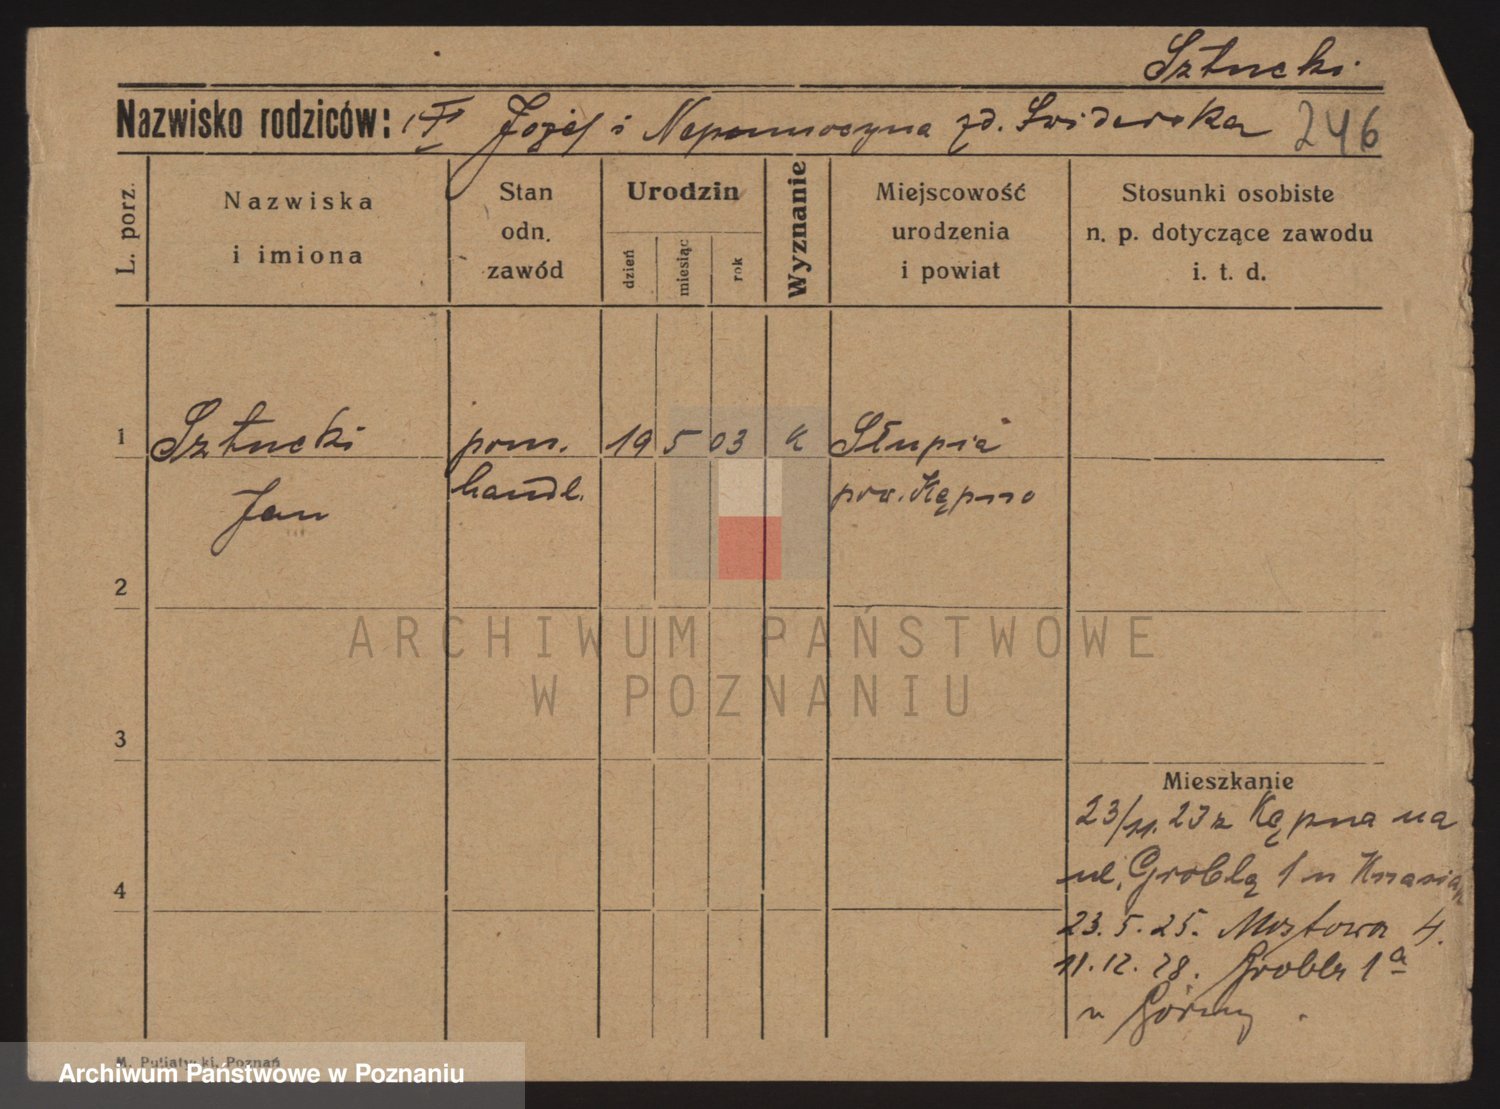 Sztucki
Nazwisko rodziców: Józef i Nepomucyna zd. Świderska 246
L. porz.
Nazwiska
i imiona
Stan
odn.
zawód
Urodzin
dzień
miesiąc
rok
Wyznanie
Miejscowość
urodzenia
i powiat
Stosunki osobiste
n. p. dotyczące zawodu
i. t. d.
1 Sztucki pom. 19 5 03 k Słupia
Jan handl. pow. Kępno
2
ARCHIWUM PAŃSTWOWE
W POZNANIU
3
Mieszkanie
23/11. 23 z Kępna na
4 ul. Groblą 1 u
23. 5. 25. Mostowa 4.
11. 12. 28. Grobla 1a
u
M. Putiatycki, Poznań
Archiwum Państwowe w Poznaniu